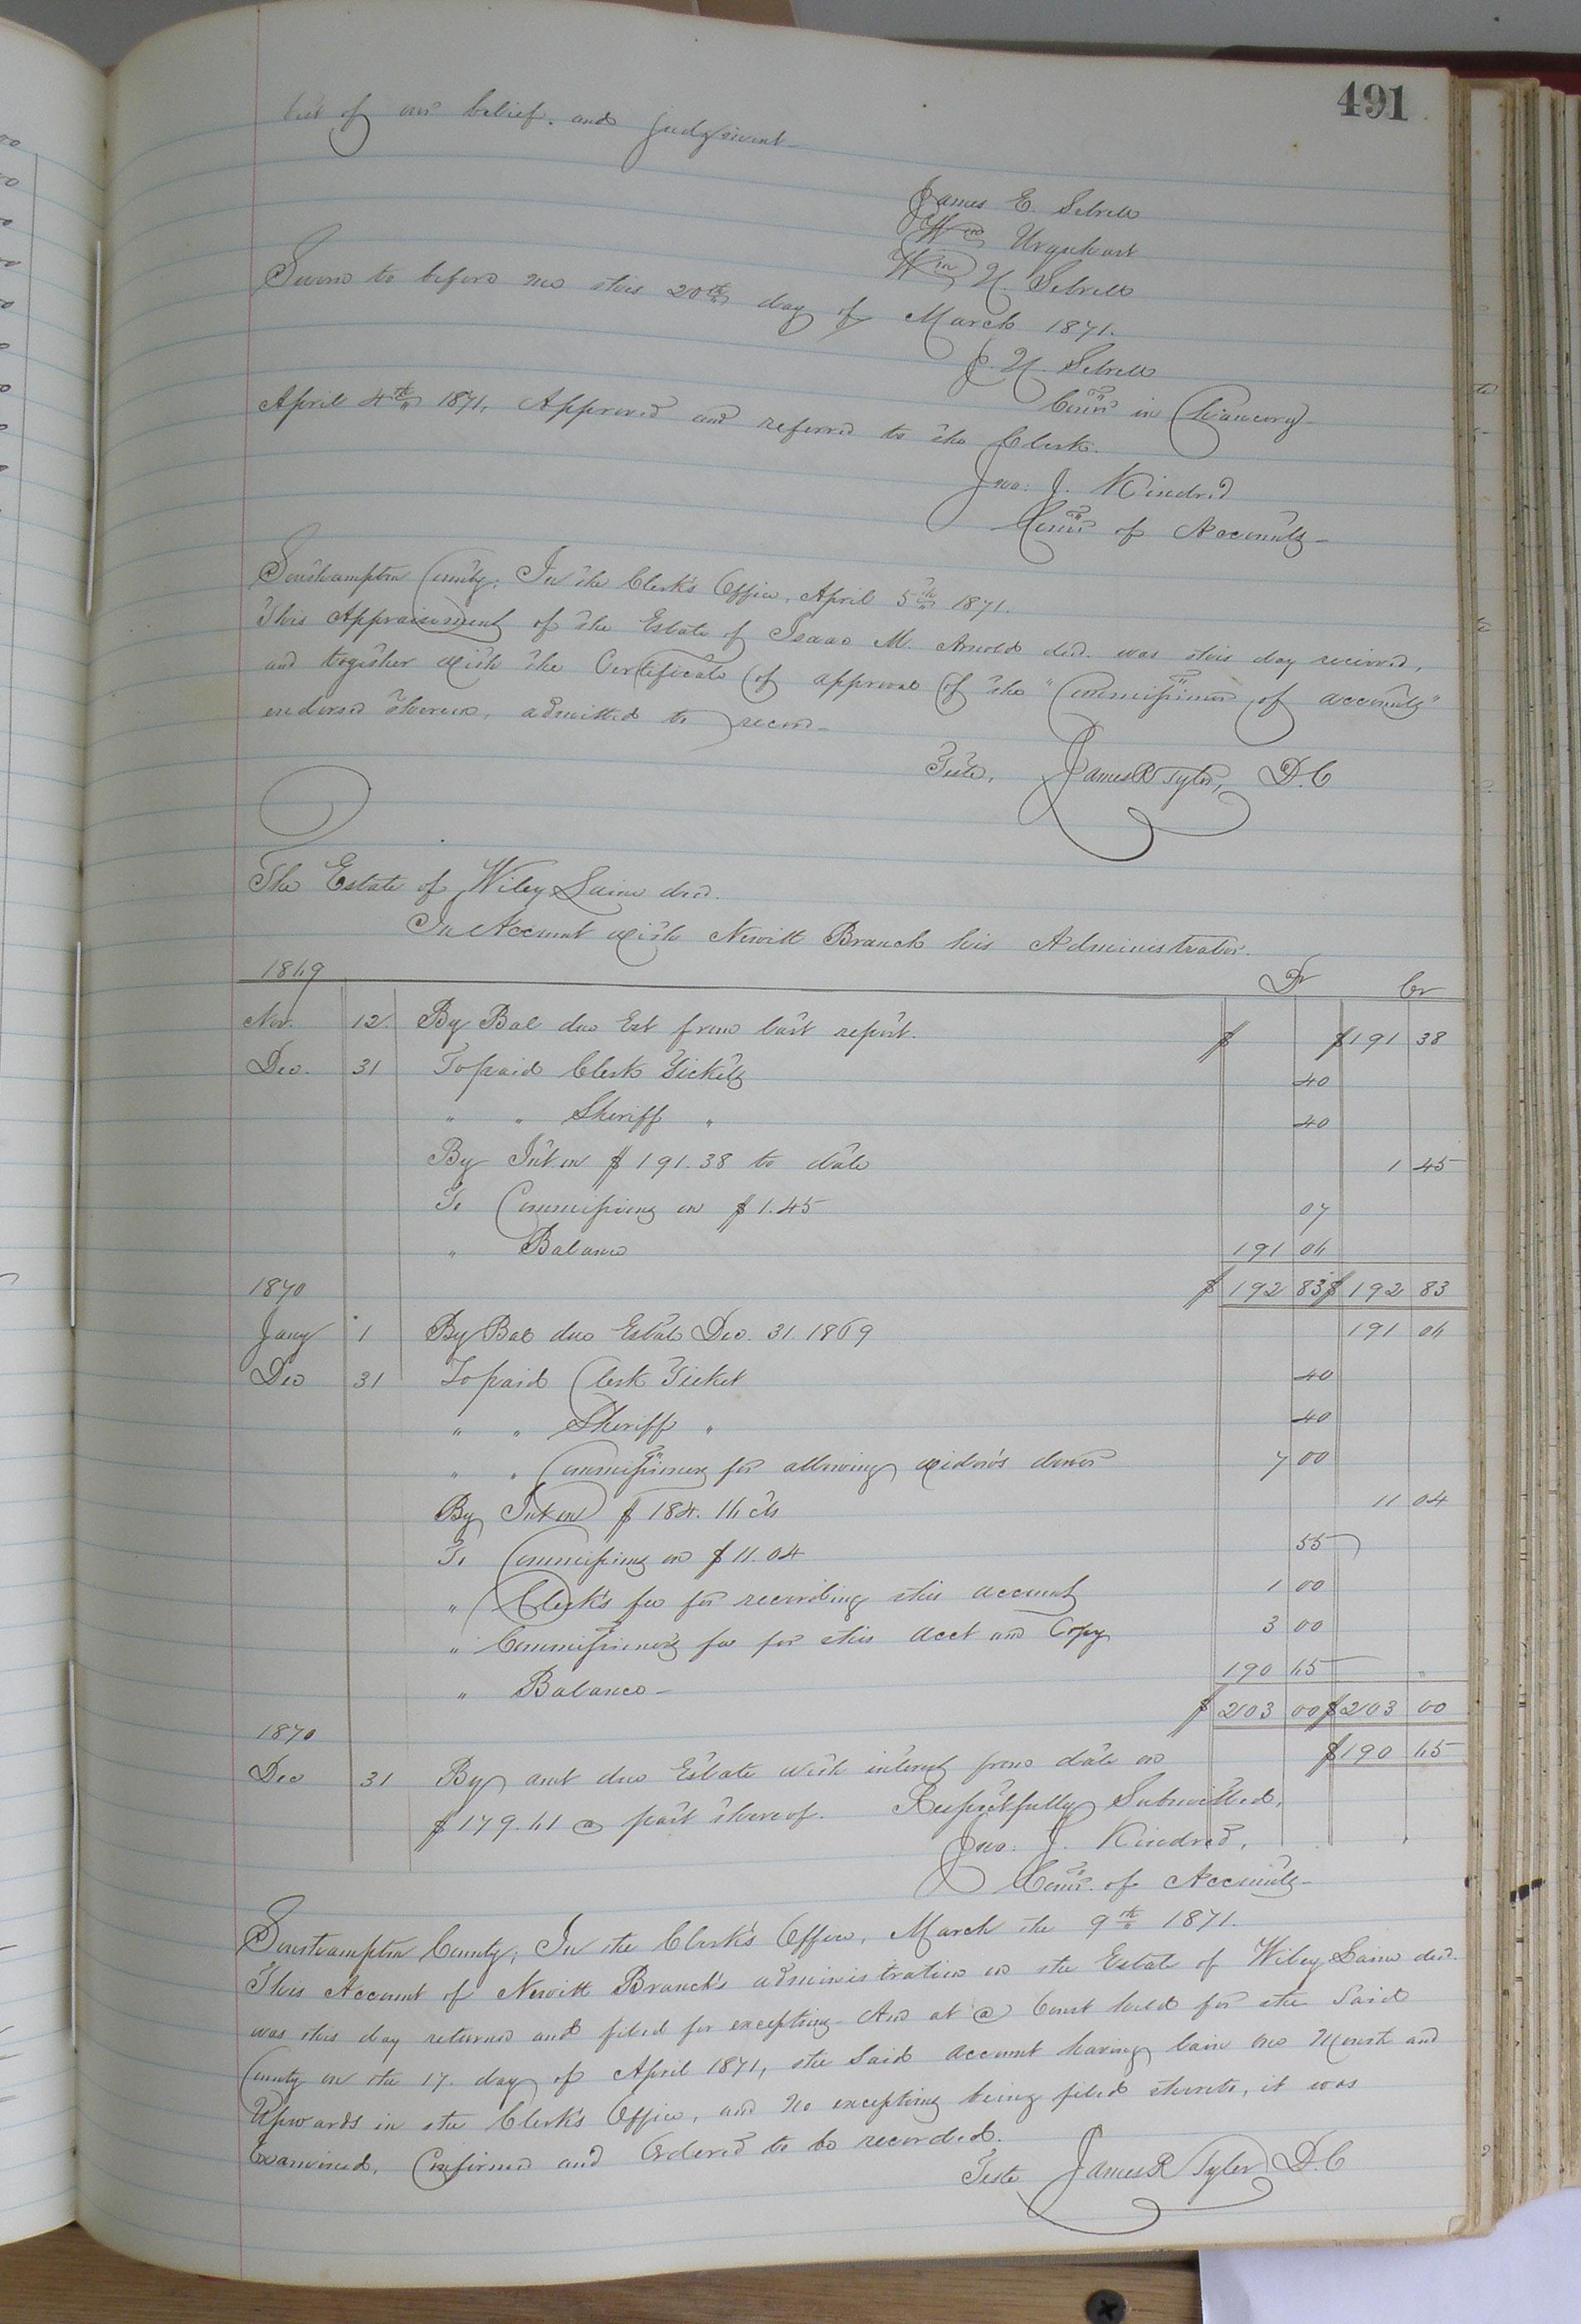 491
best of our belief and judgment
James E. Sebrell
Wm Urquhart
Wm H. Sebrell
Sworn to before me this 20th day of March 1871.
J. H. Sebrell
Comr in Chancery
April 4th 1871, Approved and referred to the Clerk.
Jno: J. Kindred
Comr of Accounts
Southampton County: In the Clerk's Office, April 5th 1871.
This Appraisement of the Estate of Isaac M. Arnold decd. was this day received,
and together with the Certificate of approval of the "Commissioner of accounts"
endorsed thereon, admitted to record
Teste, James R Tyler, D.C
The Estate of Wiley Laine decd.
In Account with Newitt Branch his Administrator.
1869 Dr Cr
Nov. 12. By Bal due Est from last report. $ $191 38
Dec. 31 To paid Clerks Tickets 40
" " Sheriff " 40
By Int. on $191.38 to date 1 45
To Commissions on $1.45 07
" Balance 191 96
1870 $ 192 83 $ 192 83
Jany 1 By Bal due Estate Dec. 31. 1869 191 96
Dec 31 To paid Clerk Ticket 40
" " Sheriff " 40
" " Commissioners for allowing widow's dower 7 00
By Int on $184.16 cts 11 04
To Commissions on $11.04 55
" Clerk's fee for recording this account 1 00
" Commissioner's fee for this acct and Copy 3 00
" Balance 190 65 "
1870 $ 203 00 $ 203 00
Dec 31 By amt due Estate with interest from date on $190 65
$179.61 a part thereof. Respectfully Submitted,
Jno. J. Kindred,
Comr. of Accounts
Southampton County; In the Clerk's Office, March the 9th 1871.
This Account of Newitt Branch's administration on the Estate of Wiley Laine decd.
was this day returned and filed for exceptions And at a Court held for the Said
County on the 17. day of April 1871, the Said account having lain one Month and
Upwards in the Clerk's Office, and no exceptions being filed thereto, it was
Examined, Confirmed and Ordered to be recorded.
Teste James R Tyler D.C